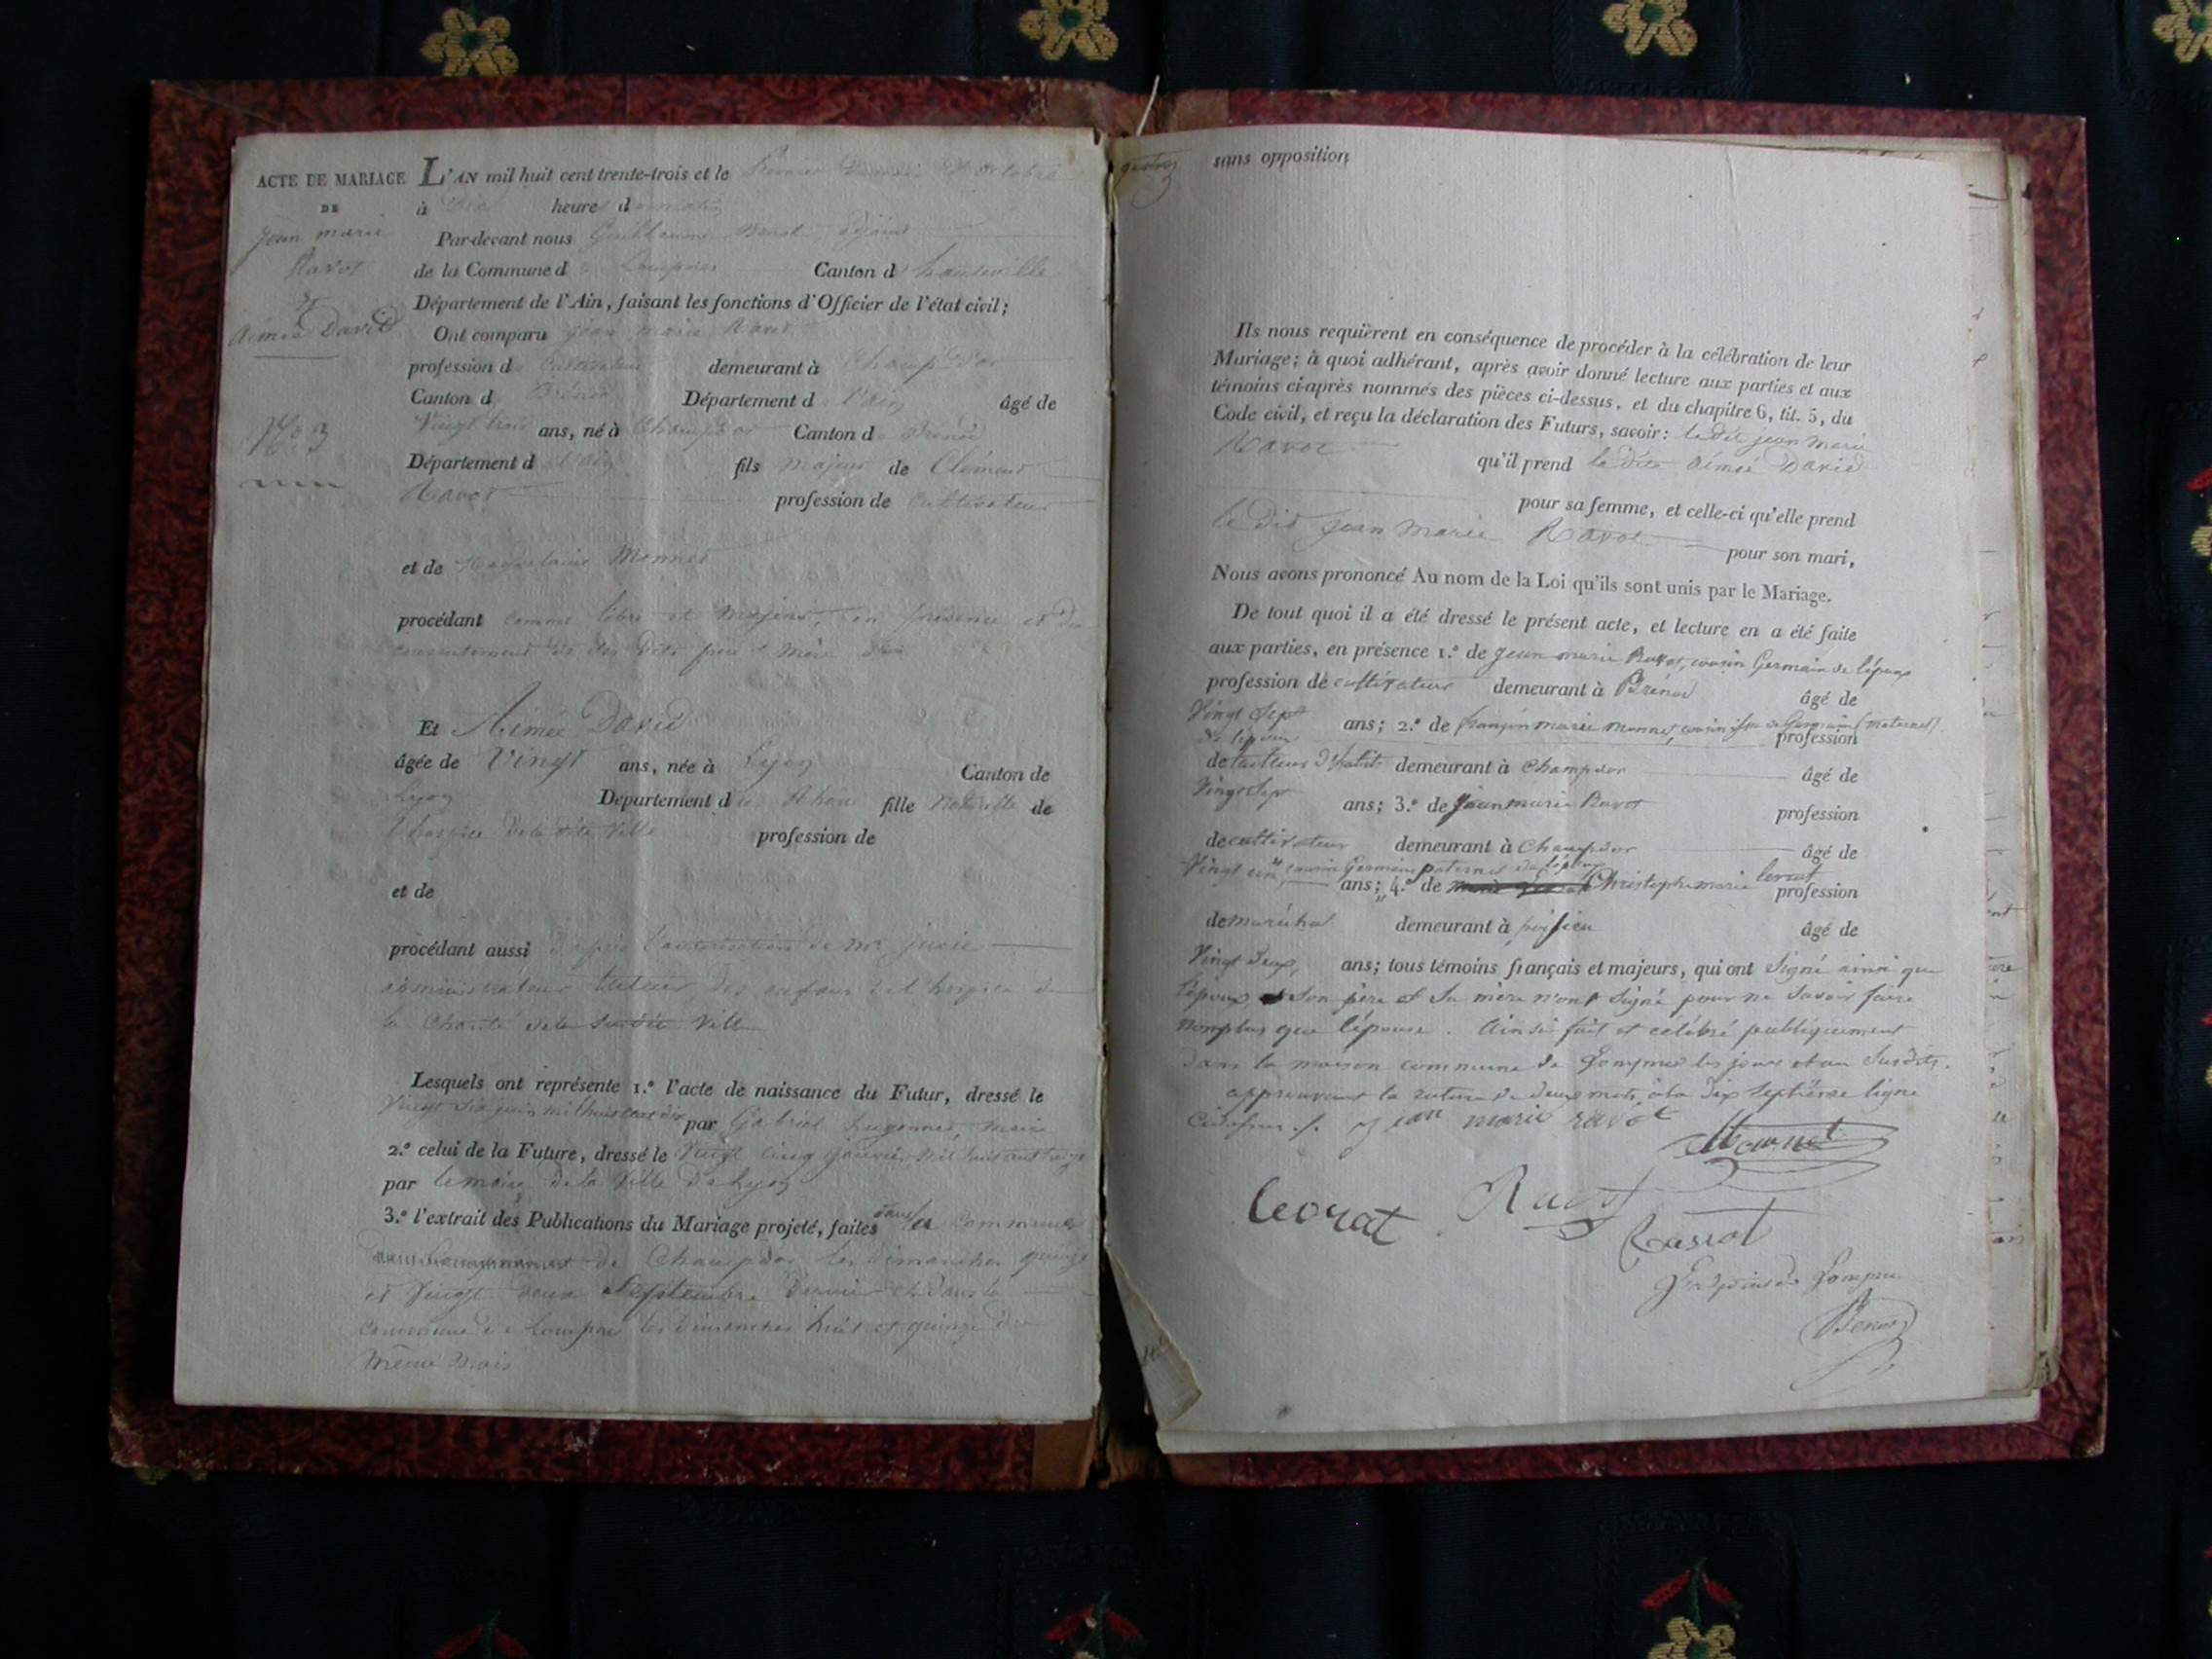 ACTE DE MARIAGE
DE
jean marie
Ravot
et
Aimée David
N.o 3
L'AN mil huit cent trente-trois et le Premier octobre
à Dix heures du matin
Par-devant nous Guillaume adjoint
de la Commune de Lompnes Canton d'hauteville
Département de l'Ain, faisant les fonctions d'Officier de l'état civil;
Ont comparu jean marie Ravot
profession de Cultivateur demeurant à Champdor
Canton de Brénod Département de l'ain âgé de
Vingt trois ans, né à Champdor Canton de Brénod
Département de l'ain fils majeur de Clément
Ravot profession de Cultivateur
et de Monnet
procédant comme libre et majeur, en présence et du
consentement de ses dits père et mère
Et Aimée David
âgée de Vingt ans, née à Lyon Canton de
Lyon Département du Rhône fille Naturelle de
l'hospice de la dite Ville profession de
et de
procédant aussi d'après l'autorisation de Mr
administrateur tuteur des enfans de l'hospice de
la Charité de la susdite Ville
Lesquels ont représenté 1.o l'acte de naissance du Futur, dressé le
Vingt six juin mil huit cent dix par Gabriel maire
2.o celui de la Future, dressé le Vingt cinq janvier mil huit cent treize
par le maire de la Ville de Lyon
3.o l'extrait des Publications du Mariage projeté, faites dans la Commune
de Champdor les dimanches quinze
et Vingt deux Septembre dernier et dans la
commune de Lompnes les dimanches huit et quinze du
même mois
sans opposition
Ils nous requièrent en conséquence de procéder à la célébration de leur
Mariage; à quoi adhérant, après avoir donné lecture aux parties et aux
témoins ci-après nommés des pièces ci-dessus, et du chapitre 6, tit. 5, du
Code civil, et reçu la déclaration des Futurs, savoir: le dit jean marie
Ravot qu'il prend la dite Aimée David
pour sa femme, et celle-ci qu'elle prend
le dit jean marie Ravot pour son mari,
Nous avons prononcé Au nom de la Loi qu'ils sont unis par le Mariage.
De tout quoi il a été dressé le présent acte, et lecture en a été faite
aux parties, en présence 1.o de jean marie Ravot, cousin Germain de l'époux
profession de cultivateur demeurant à Brénod âgé de
Vingt Sept ans; 2.o de françois marie monnet, cousin issu de Germain (maternel)
de l'époux profession
de tailleur d'habits demeurant à Champdor âgé de
Vingt Sept ans; 3.o de Jean marie Ravot profession
de cultivateur demeurant à Champdor âgé de
Vingt cinq, cousin Germain paternel de l'époux
ans; 4.o de Christophe marie profession
de maréchal demeurant à âgé de
Vingt deux, ans; tous témoins français et majeurs, qui ont Signé ainsi que
l'époux Son père et Sa mère n'ont Signé pour ne Savoir faire
nonplus que l'épouse. Ainsi fait et célébré publiquement
dans la maison commune de Lompnes les jours et an Susdits.
approuvant la rature de deux mots à la dix Septième ligne
Ci-dessus. jean marie ravot
Monnet
Ravot